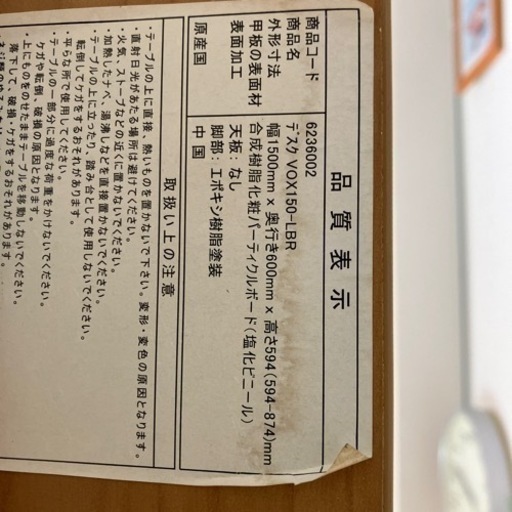 品質表示
商品コード 6236002
商品名 デスク VOX150-LBR
外形寸法 幅1500mm x 奥行き600mm x 高さ594(594-874)mm
甲板の表面材 合成樹脂化粧パーティクルボード(塩化ビニール)
表面加工 天板：なし
脚部：エポキシ樹脂塗装
原産国 中国
取扱い上の注意
・テーブルの上に直接、熱いものを置かないで下さい。変形・変色の原因となります。
・直射日光があたる場所は避けてください。
・火気、ストーブなどの近くに置かないでください。
・加熱したナベ、湯沸しなどを直接置かないでください。
・テーブルの上に立ったり、踏み台として使用しないでください。
転倒してケガをするおそれがあります。
・平らな所で使用してください。
・テーブルの一部分に過度な荷重をかけないでください。
ケガや転倒、破損の原因となります。
・上にものをのせたままテーブルを移動しないでください。
落下して、破損・ケガをするおそれがあります。